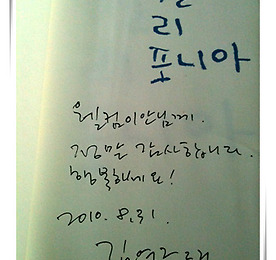 리
포니아
웰컴이안님께.
정말 감사합니다.
행복하세요!
2010. 8. 31.